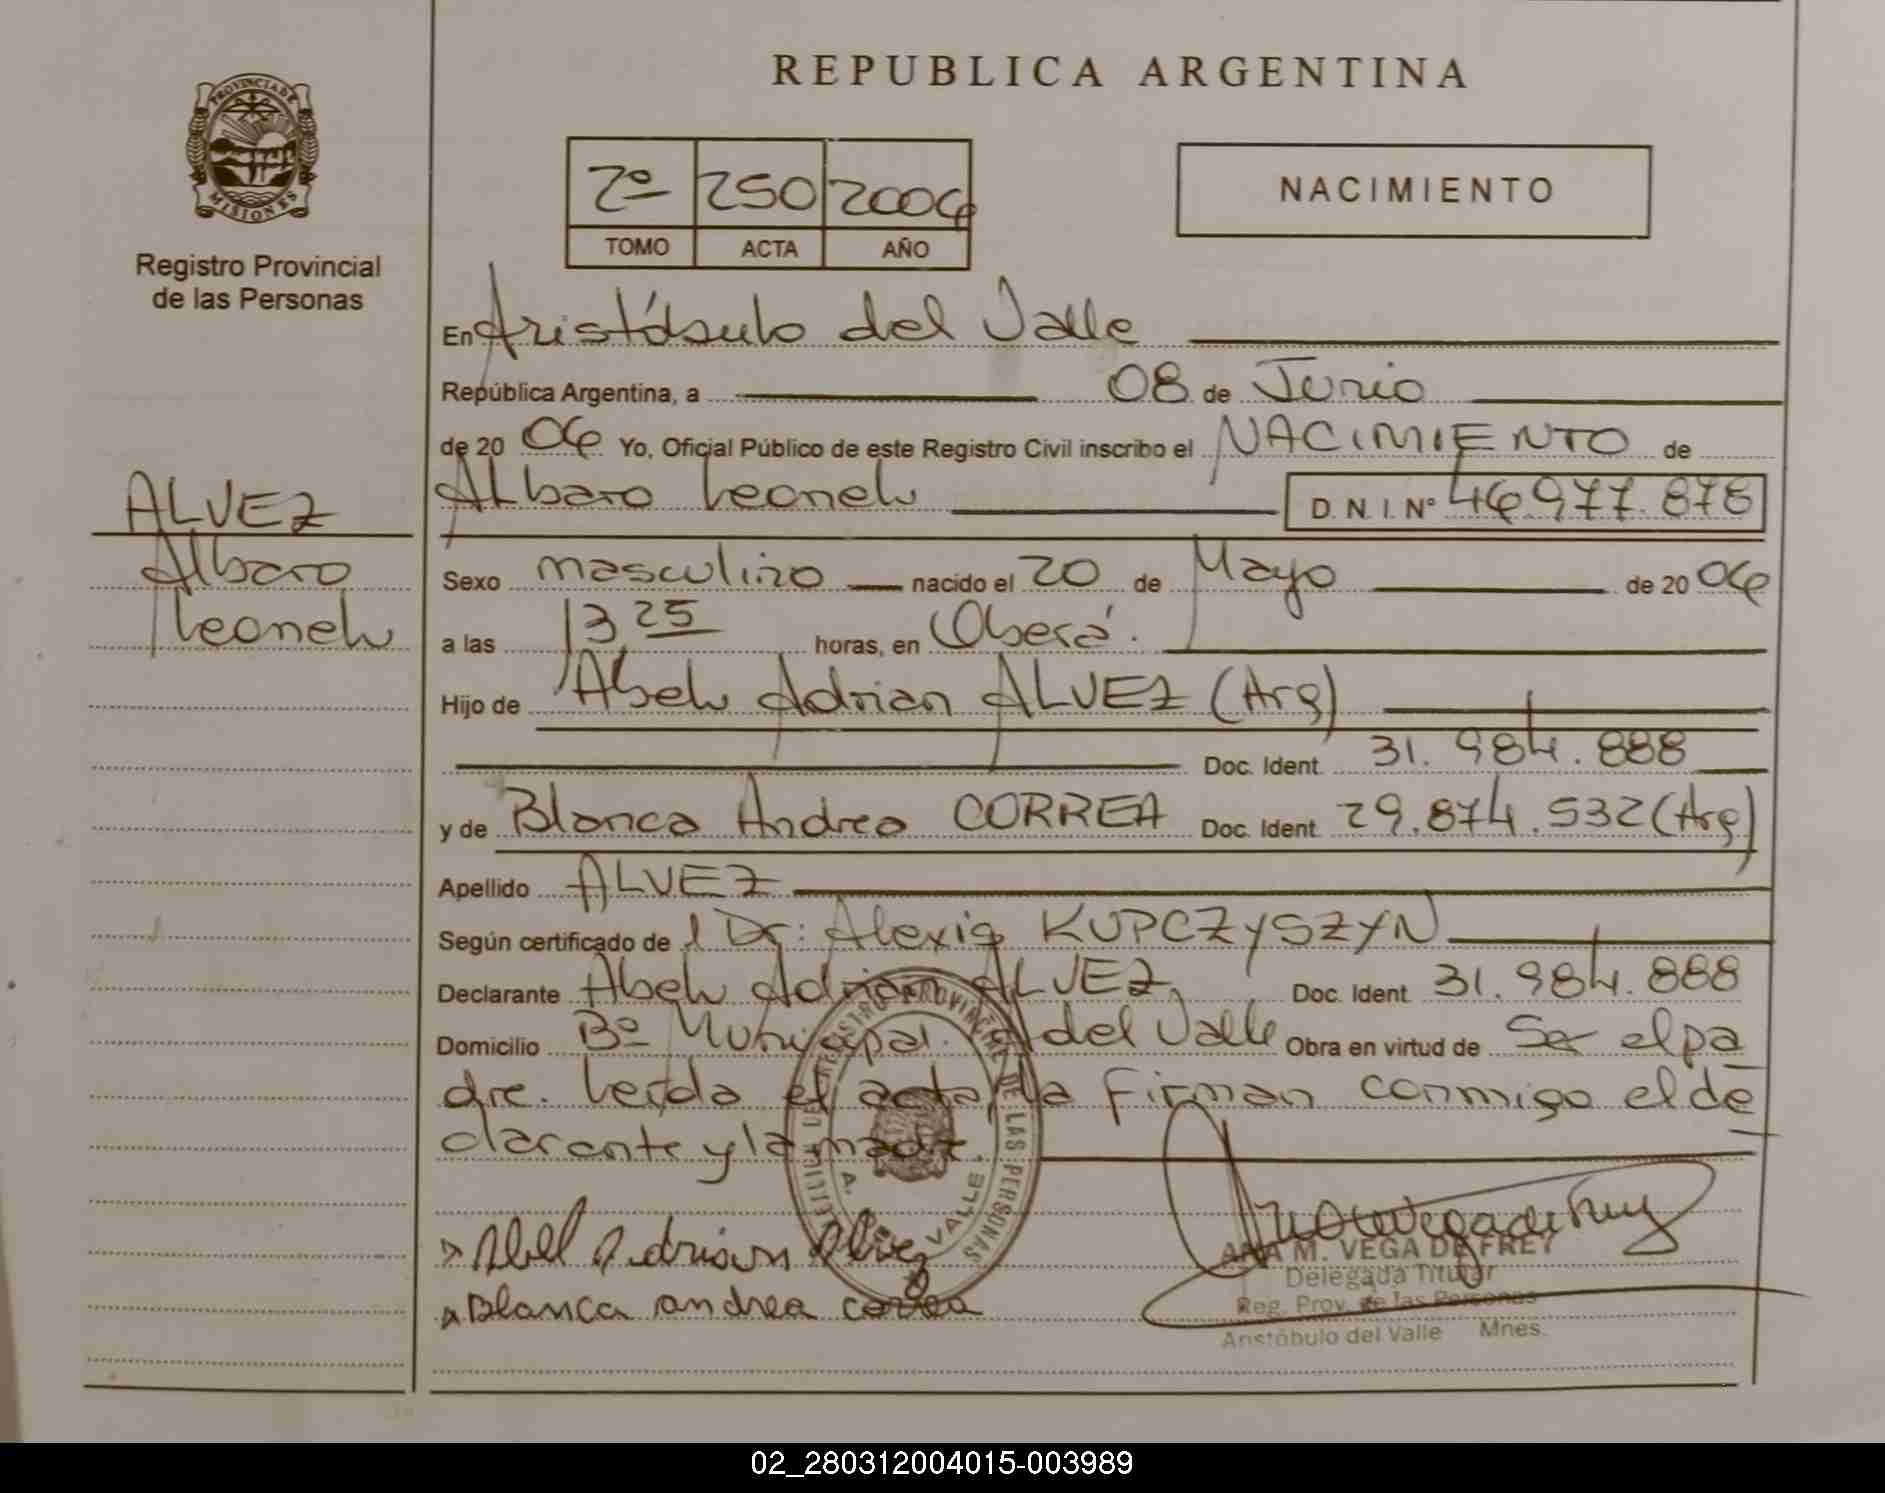 REPUBLICA ARGENTINA
PROVINCIA DE
MISIONES
Registro Provincial
de las Personas
2º 250 2006
TOMO ACTA AÑO
NACIMIENTO
En Aristóbulo del Valle
República Argentina, a 08 de Junio
de 20 06 Yo, Oficial Público de este Registro Civil inscribo el NACIMIENTO de
Albaro Leonel D. N. I. Nº 46.977.878
ALVEZ
Albaro
Leonel
Sexo masculino nacido el 20 de Mayo de 20 06
a las 13 25 horas, en Oberá.
Hijo de Abel Adrian ALVEZ (Arg)
Doc. Ident. 31.984.888
y de Blanca Andrea CORREA Doc. Ident. 29.874.532 (Arg)
Apellido ALVEZ
Según certificado de l Dr: Alexis KUPCZYSZYN
Declarante Abel Adrian ALVEZ Doc. Ident. 31.984.888
Domicilio Bº Municipal. A del Valle Obra en virtud de Ser el pa
dre. Leída el acta, la firman conmigo el de
clarante y la madre.
Abel Adrian Alvez
Blanca andrea correa
REGISTRO PROVINCIAL DE LAS PERSONAS
A. DEL VALLE
ANA M. VEGA DE FREY
Delegada Titular
Reg. Prov. de las Personas
Aristóbulo del Valle Mnes.
02_280312004015-003989